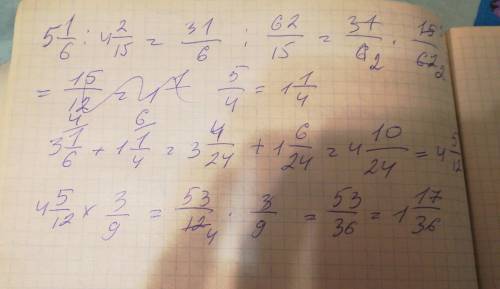 5 1/6 : 4 2/15 = 31/6 : 62/15 = 31/6 2 · 15/62 2
= 15/12 5/4 = 1 1/4
3 1/6 + 1 1/4 = 3 4/24 + 1 6/24 = 4 10/24 = 4 5/12
4 5/12 × 3/9 = 53/12 4 · 3/9 = 53/36 = 1 17/36